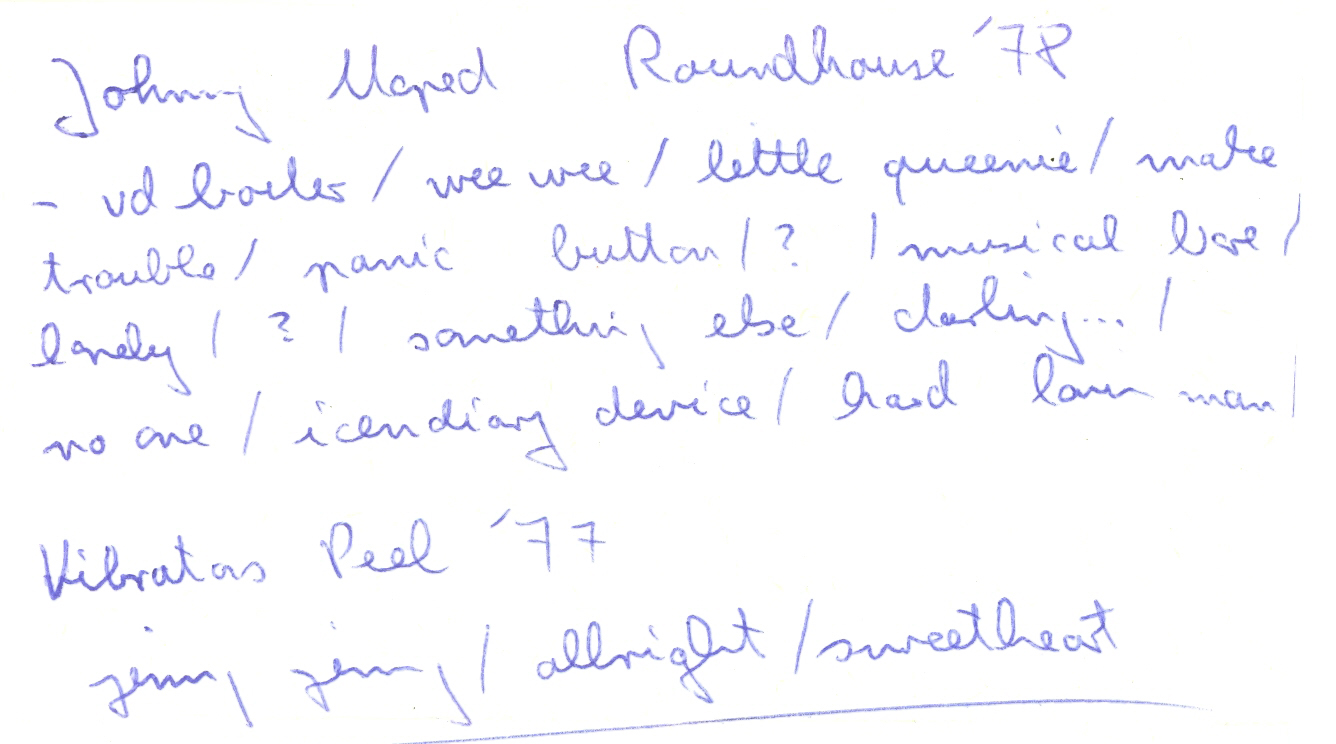 Johnny Moped Roundhouse '78
- vd boiler / wee wee / little queenie / make
trouble / panic button / ? / musical bore /
lonely / ? / something else / darling... /
no one / icendiary device / hard lovin man /
Vibrators Peel '77
jenny jenny / allright / sweetheart